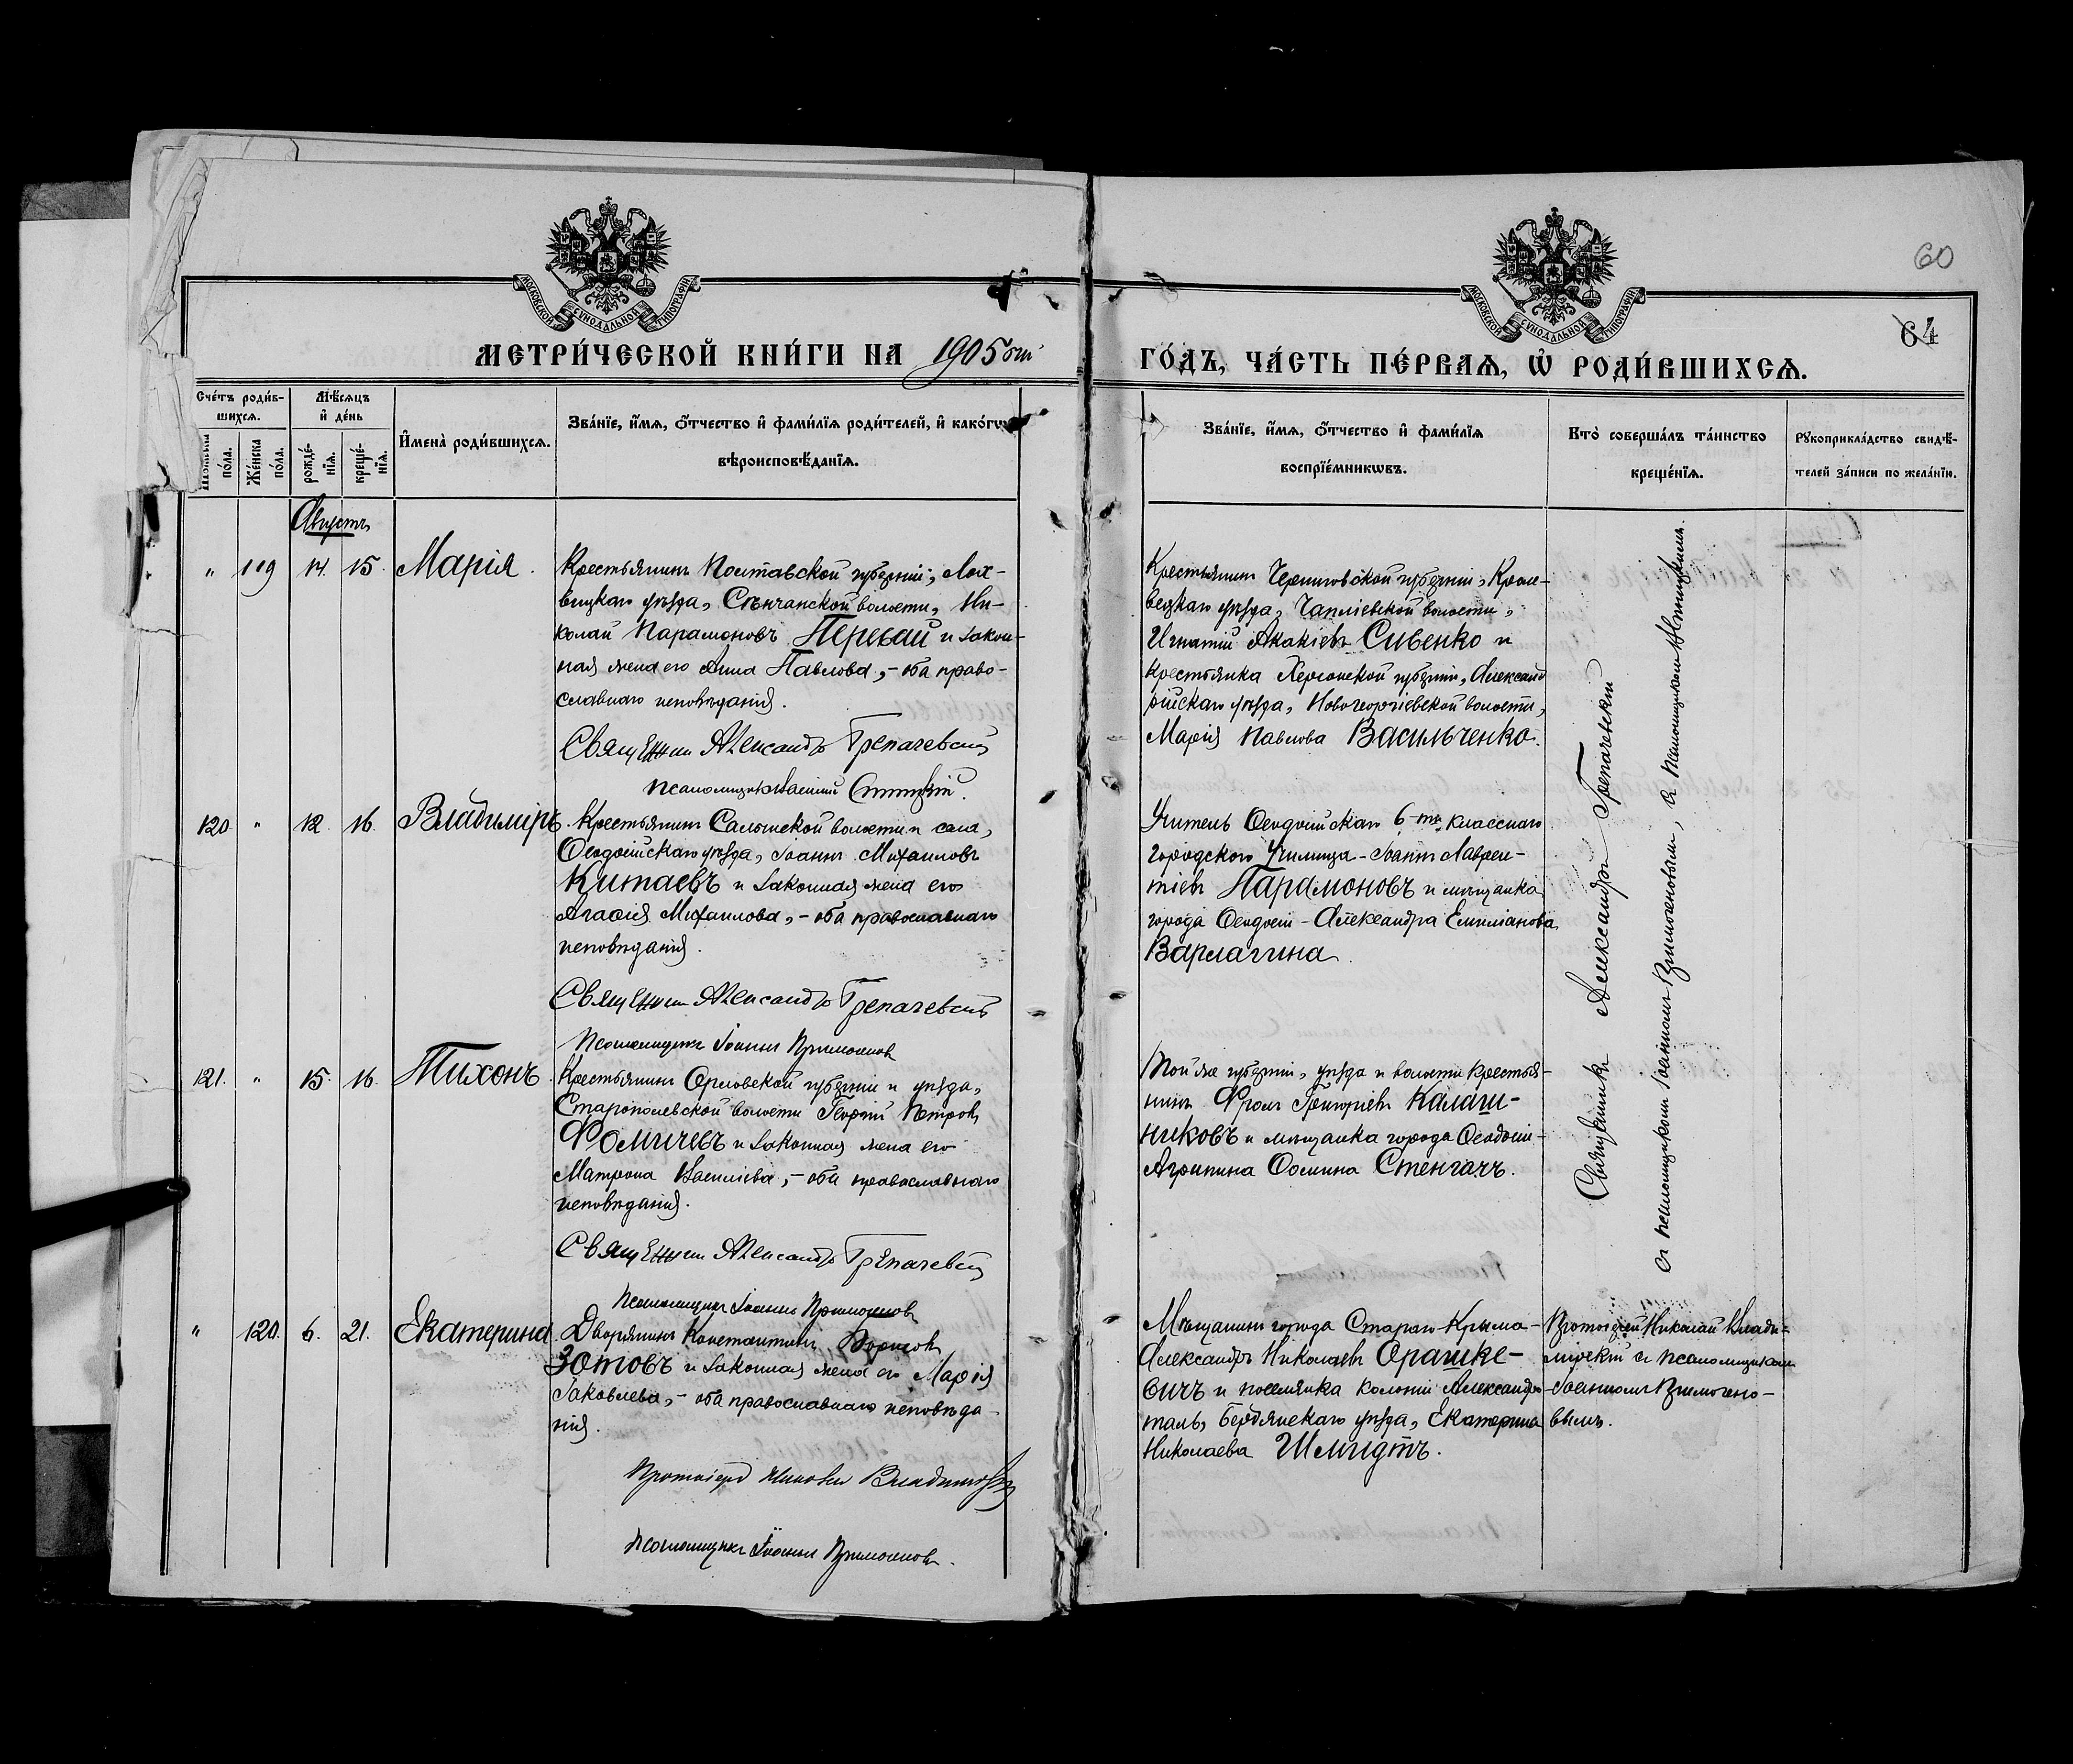 60
64
МОСКОВСКОЙ СѴНОДАЛЬНОЙ ТИПОГРАФІИ
МОСКОВСКОЙ СѴНОДАЛЬНОЙ ТИПОГРАФІИ
МЕТРИ́ЧЕСКОЙ КНИ́ГИ НА 1905 ый
ГО́ДЪ, ЧА́СТЬ ПЕ́РВАѦ, Ѡ҆ РОДИ́ВШИХСѦ.
Сче́тъ роди́в-
шихсѧ.
по́ла.
Же́нска
по́ла.
Мѣ́сѧцъ
и҆ де́нь
рожде́-
нїѧ.
креще́-
нїѧ.
И҆мена̀ роди́вшихсѧ.
Зва́нїе, и҆́мѧ, ѻ҆́тчество и҆ фами́лїѧ роди́телей, и҆ како́гѡ
вѣроисповѣ́данїѧ.
Зва́нїе, и҆́мѧ, ѻ҆́тчество и҆ фами́лїѧ
воспрїе́мникѡвъ.
Кто̀ соверша́лъ та́инство
креще́нїѧ.
Рꙋкоприкла́дство свидѣ́-
телей за́писи по жела́нїю.
Августъ
" 119 14. 15. Марія.
Крестьянинъ Полтавской губерніи, Лох-
вицкаго уѣзда, Сѣнчанской волости, Ни-
колай Парамоновъ Перевай и закон-
ная жена его Анна Павлова, - оба право-
славнаго исповѣданія.
Священникъ Александръ Трепачевскій
Псаломщикъ
Крестьянинъ Черниговской губерніи, Кроле-
вецкаго уѣзда, Чапліевской волости,
Игнатій Акакіевъ Сивенко и
крестьянка Херсонской губерніи, Александ
рійскаго уѣзда, Новогеоргіевской волости,
Марія Павлова Васильченко.
120. " 12. 16. Владиміръ.
Крестьянинъ Салынской волости и села,
Ѳеодосійскаго уѣзда, Іоаннъ Михаиловъ
Китаевъ и законная жена его
Агафія Михаилова, - оба православнаго
исповѣданія.
Священникъ Александръ Трепачевскій
Псаломщикъ Іоаннъ
Учитель Ѳеодосійскаго 6-ти класснаго
городского училища - Іоаннъ Лаврен-
тіевъ Парамоновъ и мѣщанка
города Ѳеодосіи - Александра Емиліанова
Варлагина.
121. " 15. 16. Тихонъ.
Крестьянинъ Орловской губерніи и уѣзда,
волости Георгій Петровъ
Фомичевъ и законная жена его
Матрона Васильева, - оба православнаго
исповѣданія.
Священникъ Александръ Трепачевскій
Псаломщикъ Іоаннъ
Той же губерніи, уѣзда и волости крестья-
нинъ Фролъ Григоріевъ Калаш-
никовъ и мѣщанка города Ѳеодосіи -
Агрипина Ѳомина Стенгачъ.
Священникъ Александръ Трепачевскій
съ псаломщикомъ Іоанномъ
" 120. 6. 21. Екатерина.
Дворянинъ Константинъ Борисовъ
Зотовъ и законная жена его Марія
Іаковлева, - оба православнаго исповѣда-
нія.
Протоіерей Николай Владимірскій
Псаломщикъ Іоаннъ
Мѣщанинъ города Стараго-Крыма -
Александръ Николаевъ Орашке-
вичъ и поселянка колоніи Александро-
таль, Бердянскаго уѣзда, Екатерина
Николаева Шмидтъ.
Протоіерей Николай Влади-
мірскій съ псаломщикомъ
Іоанномъ